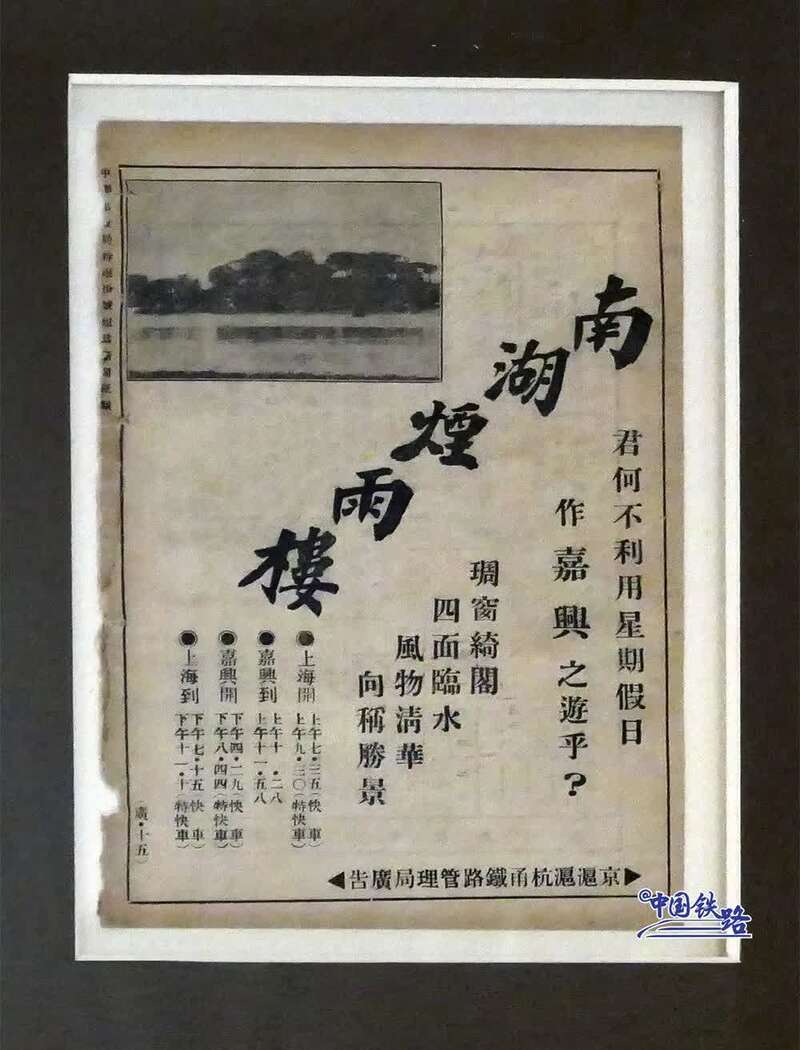 南湖煙雨樓
君何不利用星期假日
作嘉興之遊乎？
琱窗綺閣
四面臨水
風物清華
向稱勝景
上海開 上午七·三五（快車）
上午九·三〇（特快車）
嘉興到 上午十·二八
上午十一·五八
嘉興開 下午四·二九（快車）
下午八·四四（特快車）
上海到 下午七·十五（快車）
下午十一·十（特快車）
京滬滬杭甬鐵路管理局廣告
廣·十五
中国铁路